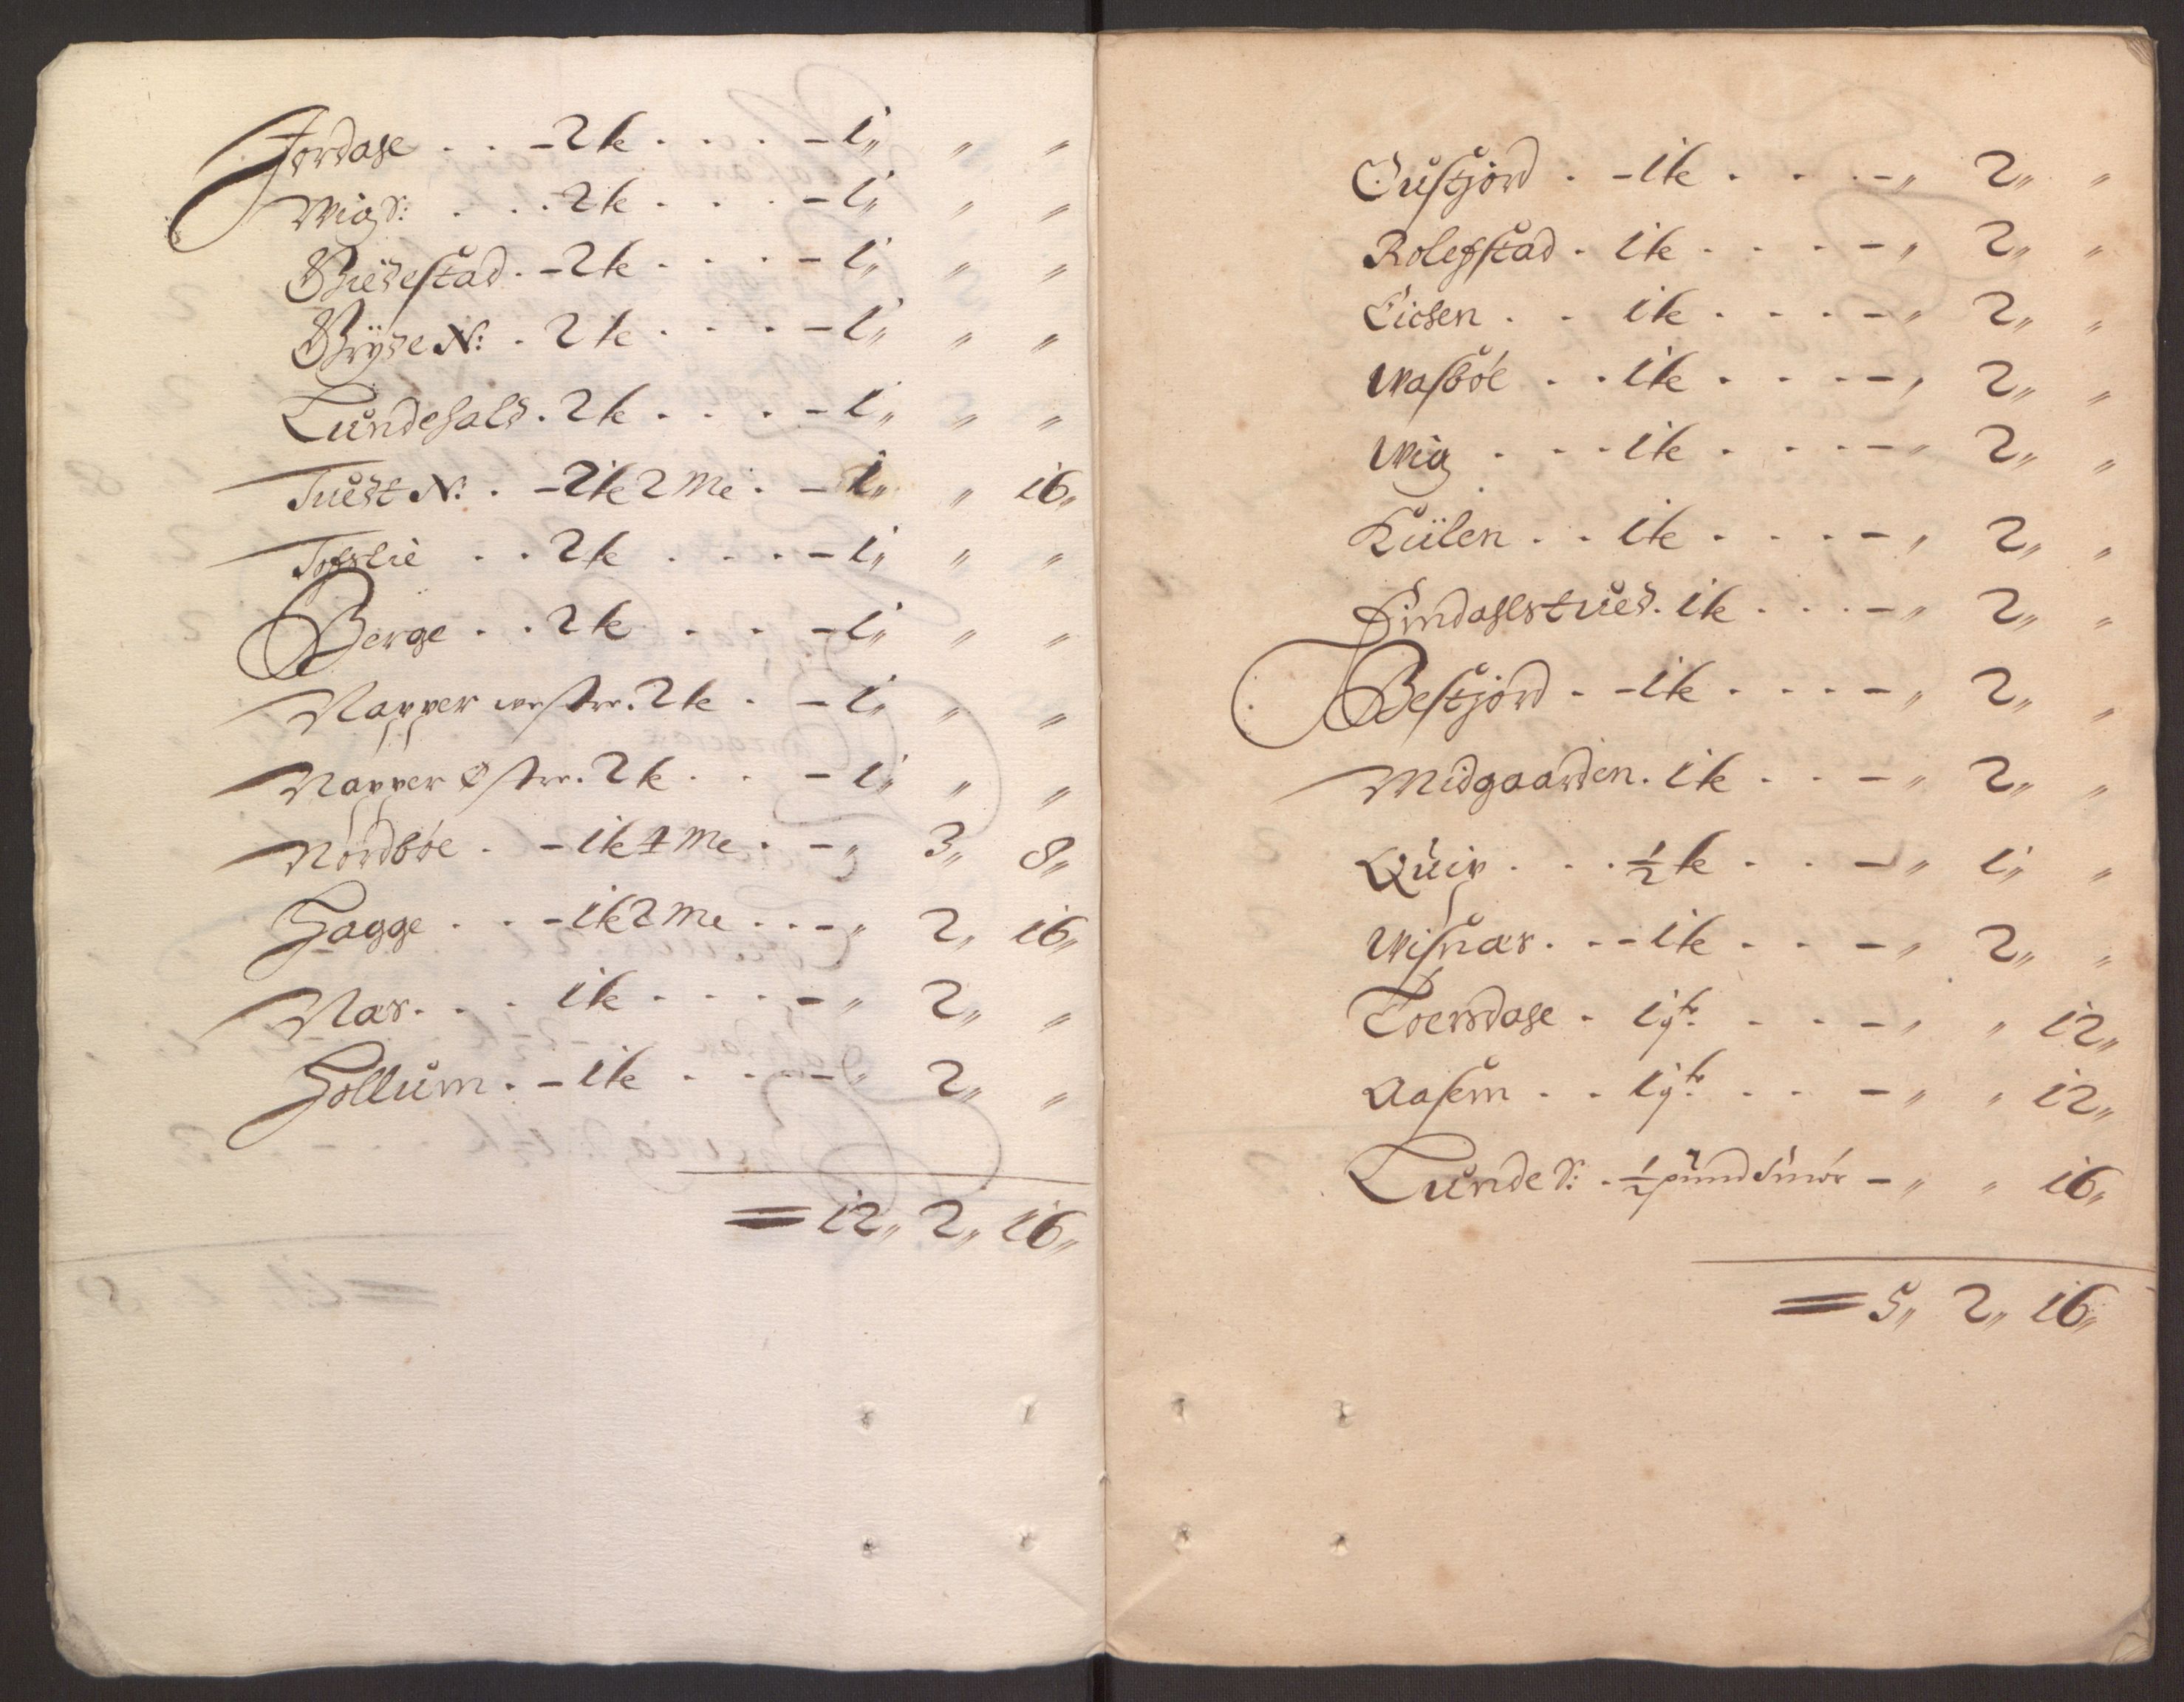 Jordage . . - 2 k . . . - 1„ „ „
Wig S: . . . 2 k . . . - 1„ „ „
Bredestad . - 2 k . . . - 1„ „ „
Bryde N: . 2 k . . . - 1„ „ „
Lundehald . 2 k . . . - 1„ „ „
Tuedt N: . - 2 k 2 Me . - 1„ „ 16„
Tofslie . . 2 k . . . - 1„ „ „
Berge . . 2 k . . . - 1„ „ „
Napper westre . 2 k . - 1„ „ „
Napper Østre . 2 k . . - 1„ „ „
Nordbøe . - 1 k 4 Me . - „ 3„ 8„
Hagge . . - 1 k 2 Me . . - „ 2„ 16„
Næs . . . 1 k . . . - „ 2„ „
Hollum . - 1 k . . . - „ 2„ „
= 12„ 2„ 16„
Oustjord . - 1 k . . . - „ 2„ „
Rolefstad . 1 k . . . - „ 2„ „
Eichen . . 1 k . . . - „ 2„ „
Wasbøe . . 1 k . . . - „ 2„ „
Wig . . . 1 k . . . - „ 2„ „
Külen . . 1 k . . . - „ 2„ „
Findahlstued . 1 k . . . - „ 2„ „
Bestjord . - 1 k . . . - „ 2„ „
Midgaarden . 1 k . . - „ 2„ „
Quip . . . ½ k . . - „ 1„ „
Wisnæs . . - 1 k . . - „ 2„ „
Toersdage . 1 gr . . . - „ „ 12„
Aasem . . 1 gr . . . - „ „ 12„
Lunde S: . ½ pund Smør - „ „ 16„
= 5„ 2„ 16„